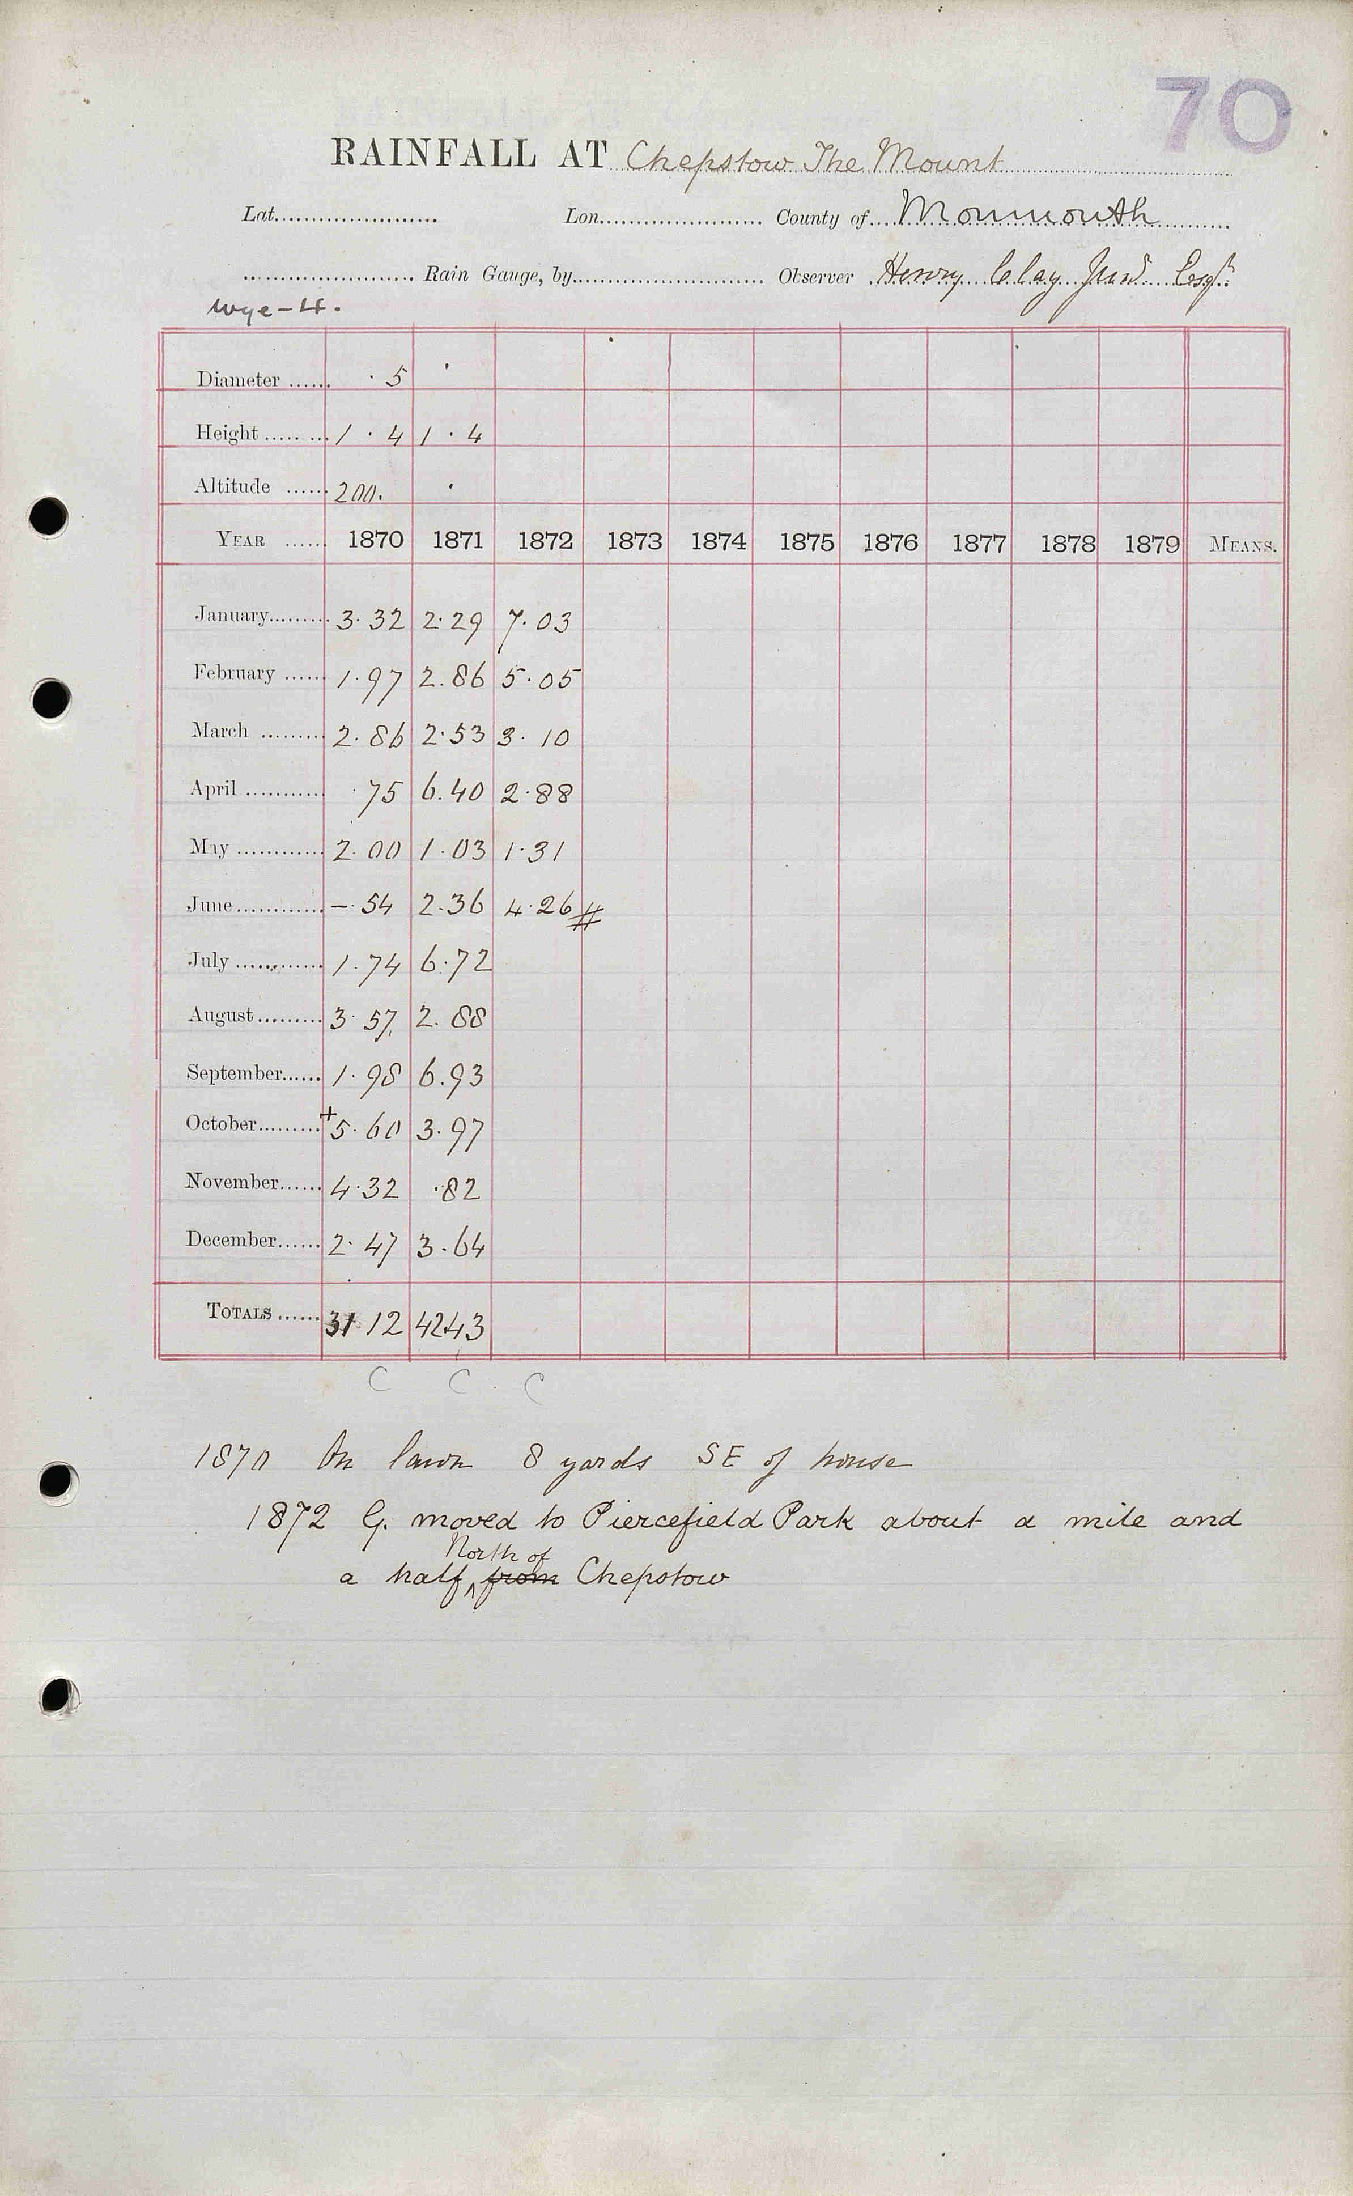 70
RAINFALL AT Chepstow The Mount
Lat. Lon. County of Monmouth
Rain Gauge, by Observer Henry Clay Junr. Esqr.
Wye-4.
Diameter 5
Height 1.4 1.4
Altitude 200.
YEAR 1870 1871 1872 1873 1874 1875 1876 1877 1878 1879 MEANS.
January 3.32 2.29 7.03
February 1.97 2.86 5.05
March 2.86 2.53 3.10
April .75 6.40 2.88
May 2.00 1.03 1.31
June -.54 2.36 4.26 #
July 1.74 6.72
August 3.57 2.88
September 1.98 6.93
October +5.60 3.97
November 4.32 .82
December 2.47 3.64
TOTALS 31 12 4243
C C C
1870 On lawn 8 yards SE of house
1872 G. moved to Piercefield Park about a mile and
North of
a half from Chepstow